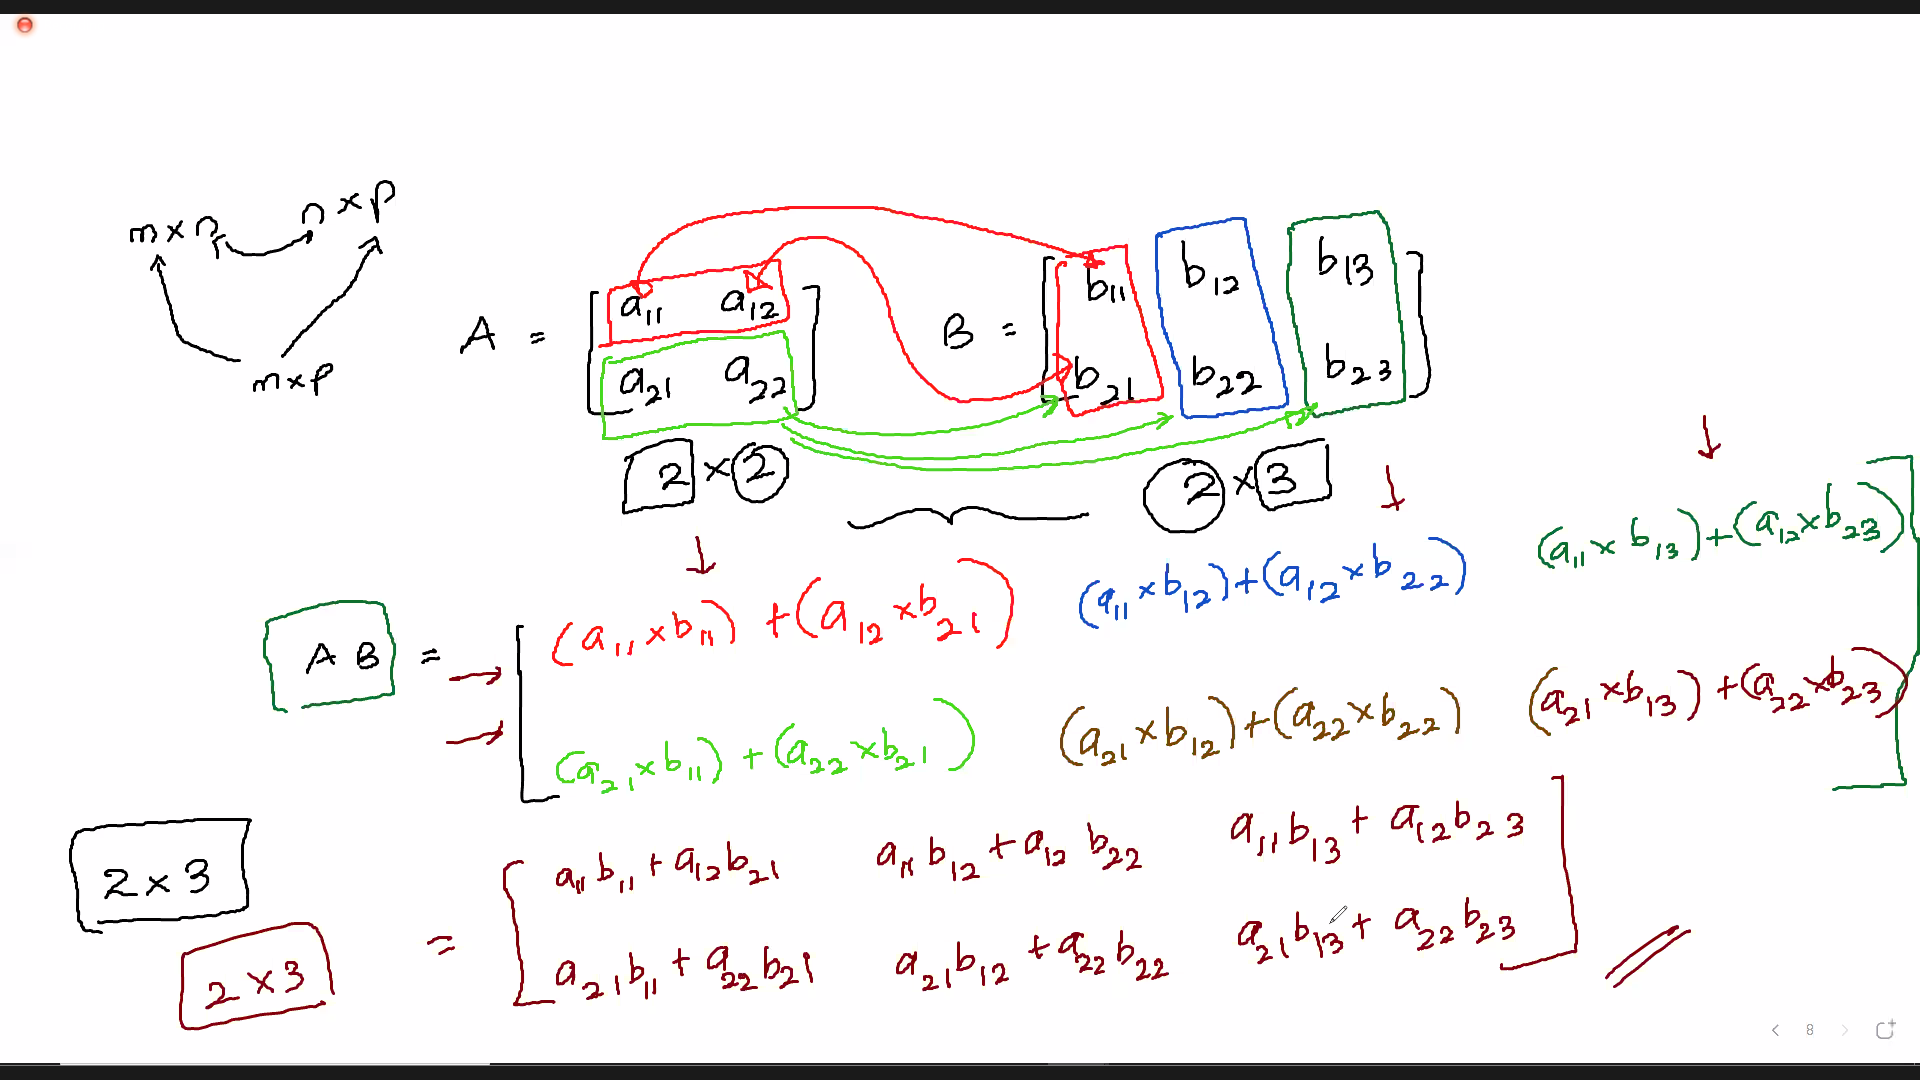 m × n n × p
m × p
A = [ a11 a12 B = [ b11 b12 b13 ]
a21 a22 ] b21 b22 b23
2 × 2 2 × 3
AB = [ (a11 × b11) + (a12 × b21) (a11 × b12) + (a12 × b22) (a11 × b13) + (a12 × b23) ]
(a21 × b11) + (a22 × b21) (a21 × b12) + (a22 × b22) (a21 × b13) + (a22 × b23)
2 × 3
= [ a11 b11 + a12 b21 a11 b12 + a12 b22 a11 b13 + a12 b23 ]
a21 b11 + a22 b21 a21 b12 + a22 b22 a21 b13 + a22 b23
2 × 3
8